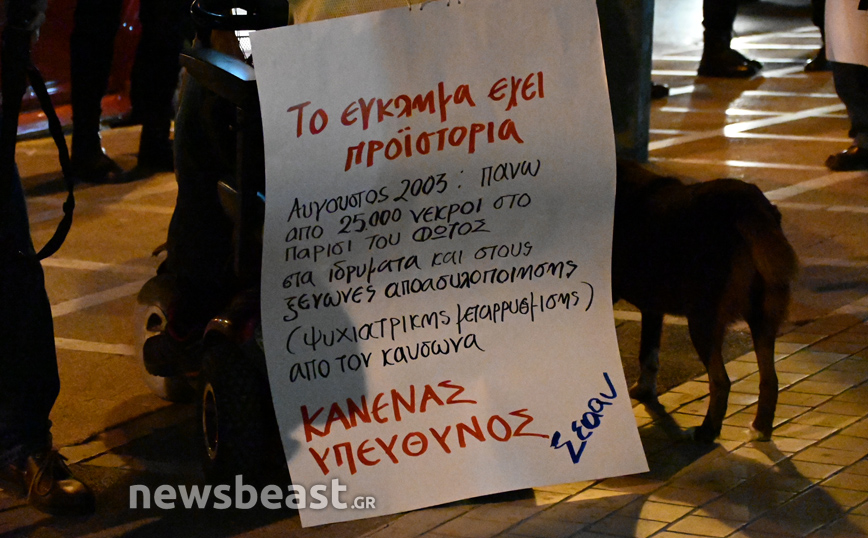 Το εγκλημα εχει
προϊστορια
Αυγουστος 2003 : πανω
απο 25.000 νεκροι στο
Παρισι του Φωτος
στα ιδρυματα και στους
ξενωνες αποασυλοποιησης
(ψυχιατρικης μεταρρυσμισης)
απο τον καυσωνα
ΚΑΝΕΝΑΣ
ΥΠΕΥΘΥΝΟΣ
newsbeast.GR